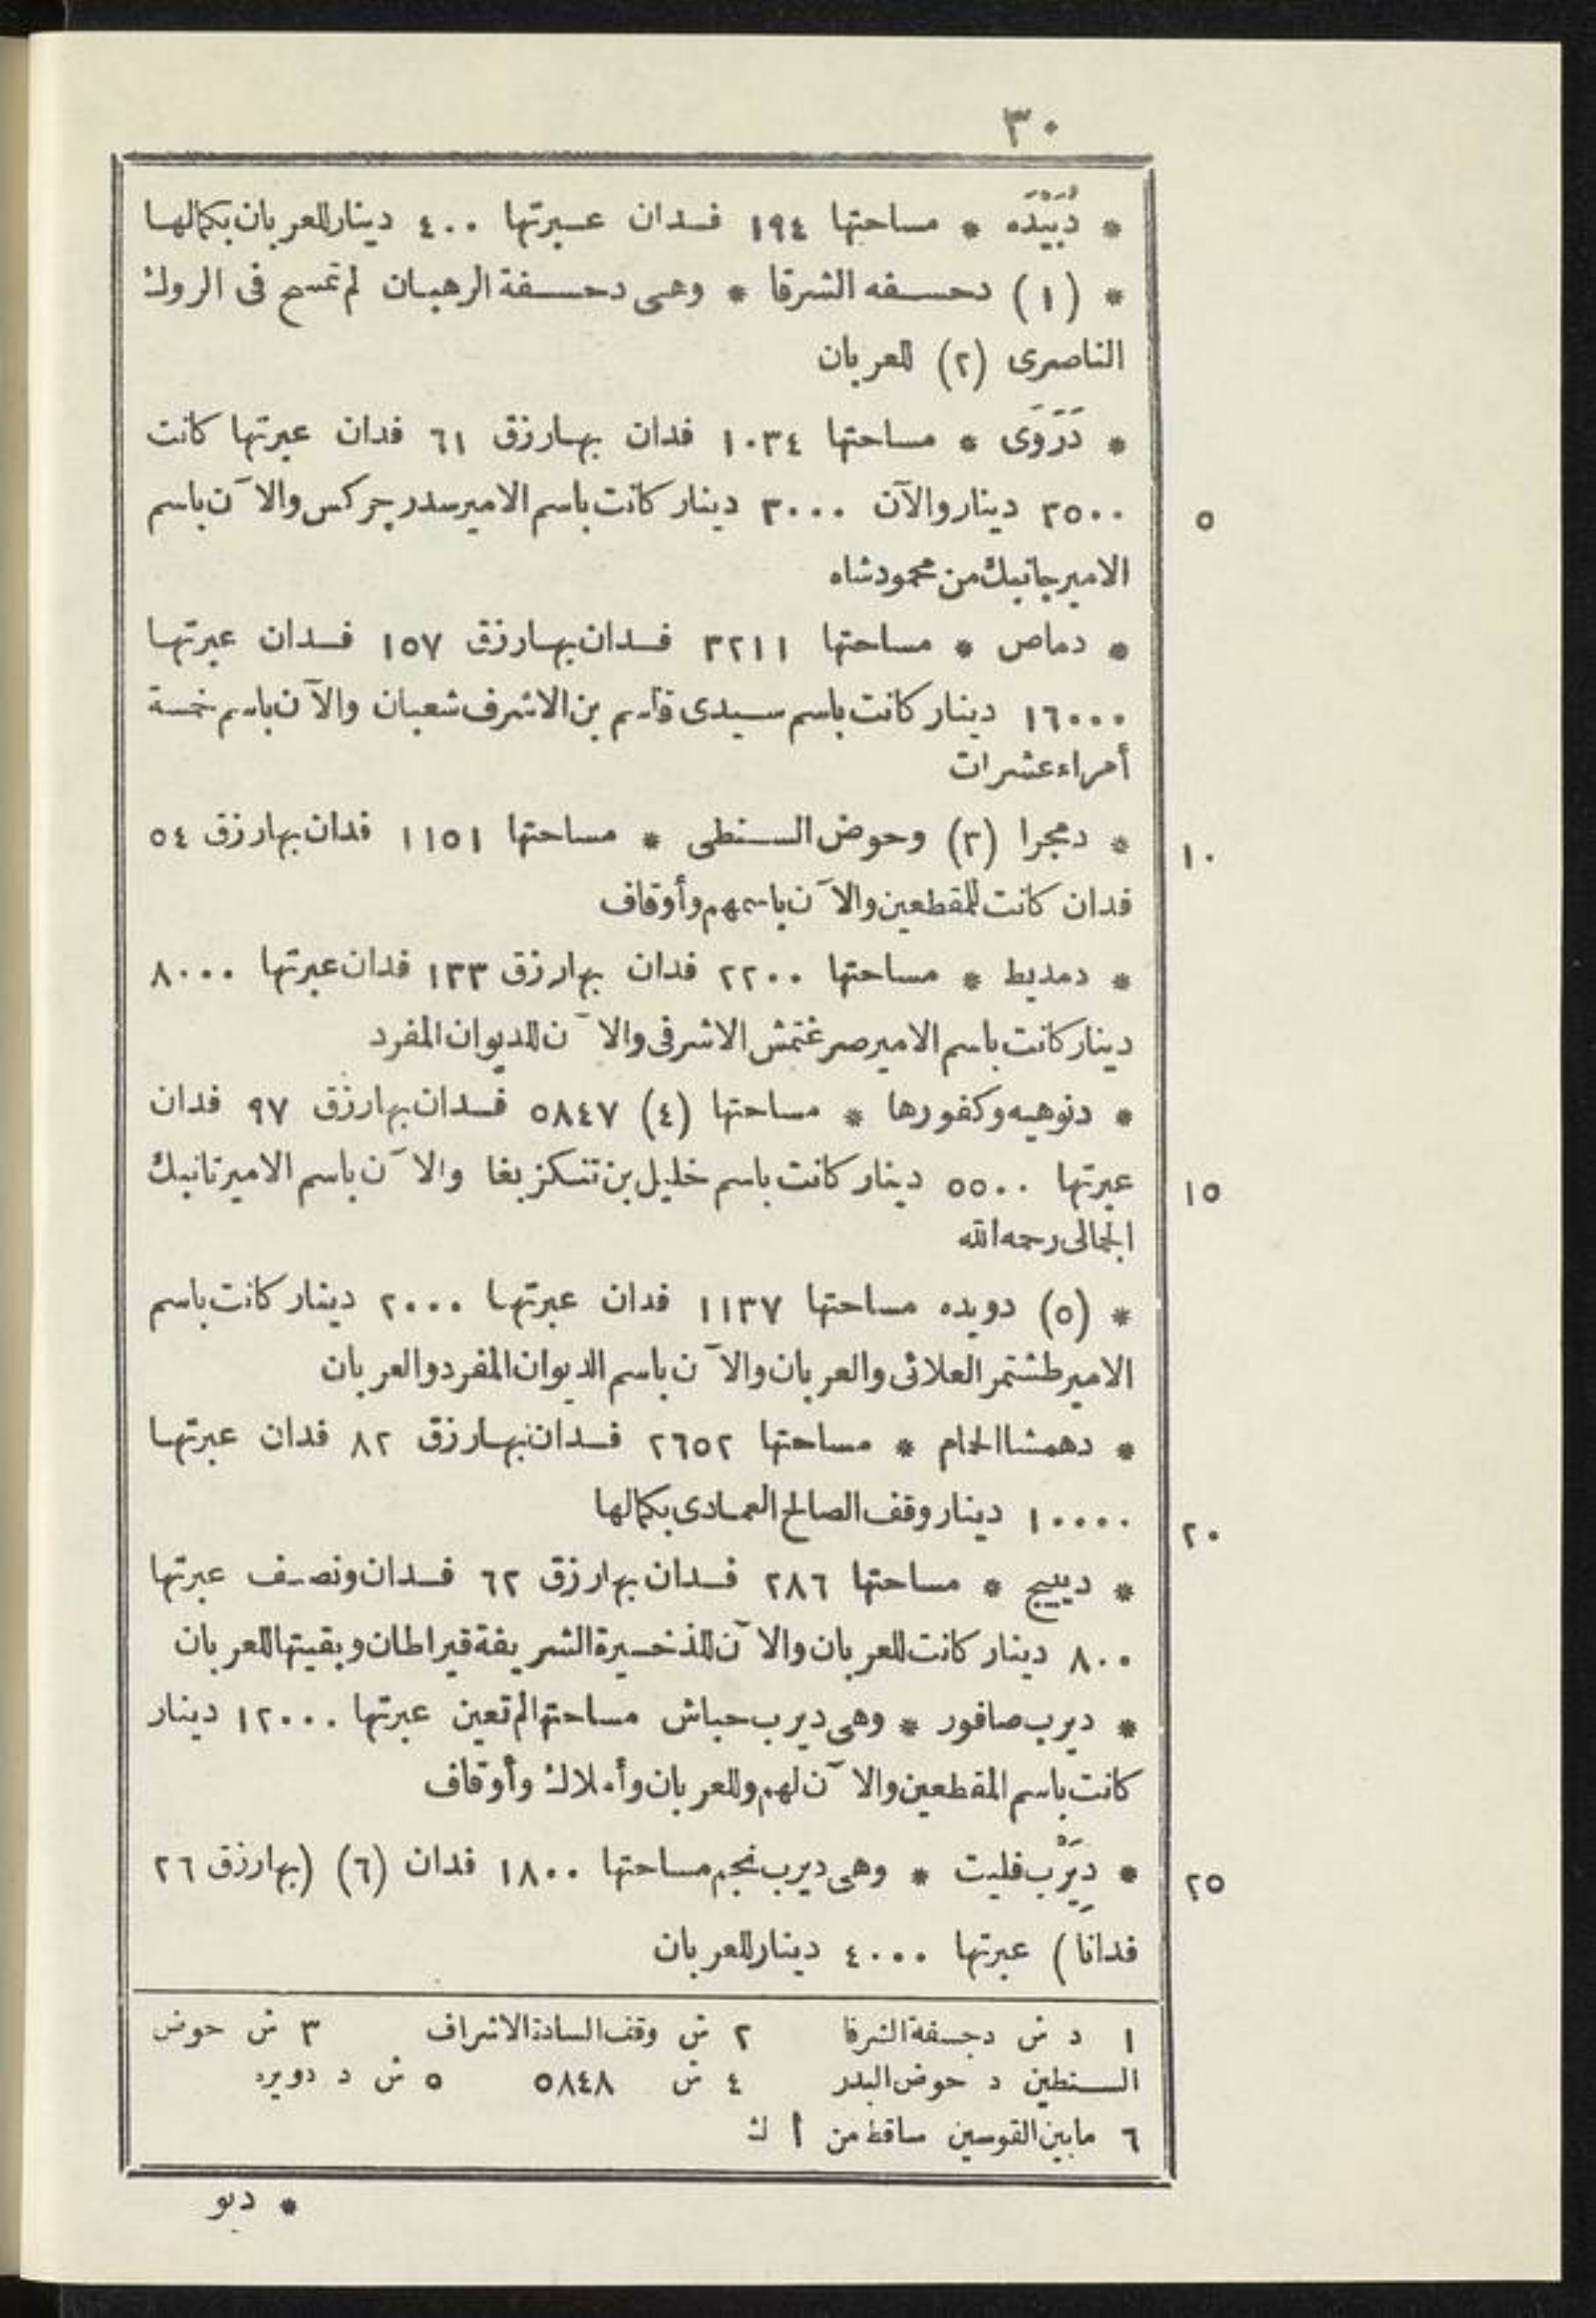 ٣٠
* دُبَيْدَه * مساحتها ١٩٤ فدان عبرتها ٤٠٠ دينار للعربان بكمالها
* (١) دحسفه الشرقا * وهى دحسفة الرهبان لم تمسح فى الروك
الناصرى (٢) للعربان
* دَرَوَى * مساحتها ١٠٣٤ فدان بها رزق ٦١ فدان عبرتها كانت
٥ ٣٥٠٠ دينار والآن ٣٠٠٠ دينار كانت باسم الامير سدر جركس والآن باسم
الامير جانبك من محمودشاه
* دماص * مساحتها ٣٢١١ فدان بها رزق ١٥٧ فدان عبرتها
١٦٠٠٠ دينار كانت باسم سيدى قاسم بن الاشرف شعبان والآن باسم خمسة
أمراء عشرات
١٠ * دمجرا (٣) وحوض السنطى * مساحتها ١١٥١ فدان بها رزق ٥٤
فدان كانت للمقطعين والآن باسمهم وأوقاف
* دمديط * مساحتها ٢٢٠٠ فدان بها رزق ١٣٣ فدان عبرتها ٨٠٠٠
دينار كانت باسم الامير صرغتمش الاشرفى والآن للديوان المفرد
* دنوهيه وكفورها * مساحتها (٤) ٥٨٤٧ فدان بها رزق ٩٧ فدان
١٥ عبرتها ٥٥٠٠ دينار كانت باسم خليل بن تنكزبغا والآن باسم الامير تانبك
الجمالى رحمه الله
* (٥) دويده مساحتها ١١٣٧ فدان عبرتها ٢٠٠٠ دينار كانت باسم
الامير طشتمر العلائى والعربان والآن باسم الديوان المفرد والعربان
* دهمشا الحمام * مساحتها ٢٦٥٢ فدان بها رزق ٨٢ فدان عبرتها
٢٠ ١٠٠٠٠ دينار وقف الصالح العمادى بكمالها
* ديبيج * مساحتها ٢٨٦ فدان بها رزق ٦٢ فدان ونصف عبرتها
٨٠٠ دينار كانت للعربان والآن للذخيرة الشريفة قيراطان وبقيتها للعربان
* ديرب صافور * وهى ديرب حباش مساحتها لم تعين عبرتها ١٢٠٠٠ دينار
كانت باسم المقطعين والآن لهم وللعربان وأملاك وأوقاف
٢٥ * دِيَرْب فليت * وهى ديرب نجم مساحتها ١٨٠٠ فدان (٦) (بها رزق ٢٦
فدانا) عبرتها ٤٠٠٠ دينار للعربان
١ د ش دجسفة الشرفا ٢ ش وقف السادة الاشراف ٣ ش حوض
السنطين د حوض البدر ٤ ش ٥٨٤٨ ٥ ش د دويره
٦ ما بين القوسين ساقط من أ ك
* ديو